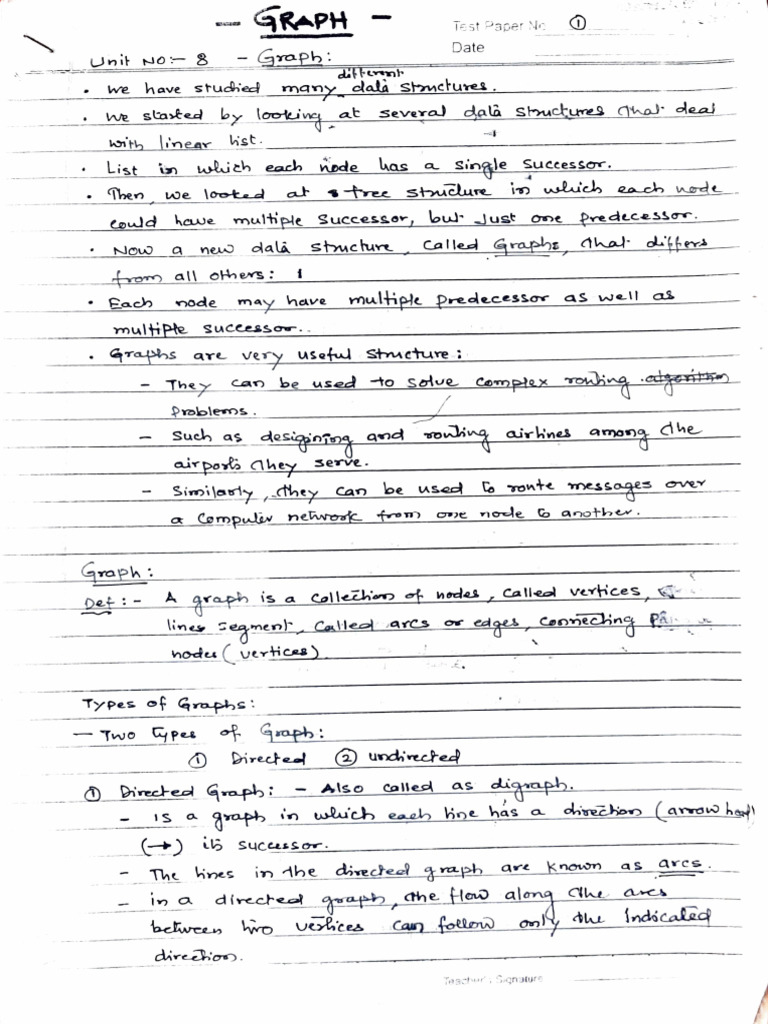 - GRAPH -
Test Paper No. ①
Date
Unit No:- 8 - Graph:
• We have studied many different data structures.
• We started by looking at several data structures that deal
with linear list.
• List in which each node has a single successor.
• Then, we looked at tree structure in which each node
could have multiple successor, but just one predecessor.
• Now a new data structure, called Graphs, that differs
from all others:
• Each node may have multiple predecessor as well as
multiple successor..
• Graphs are very useful structure:
- They can be used to solve complex routing algorithm
problems.
- Such as desigining and routing airlines among the
airports they serve.
- Similarly, they can be used to route messages over
a computer network from one node to another.
Graph:
Def:- A graph is a collection of nodes, called vertices,
lines segment, called arcs or edges, connecting
nodes (vertices).
Types of Graphs:
- Two types of Graph:
① Directed ② undirected
① Directed Graph: - Also called as digraph.
- Is a graph in which each line has a direction (arrow head)
(→) its successor.
- The lines in the directed graph are known as arcs.
- in a directed graph, the flow along the arcs
between two vertices can follow only the indicated
direction.
Teacher's Signature